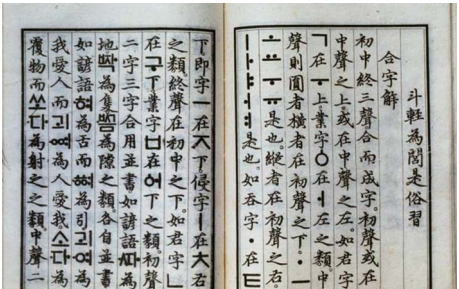 斗輕為閭是俗習
合字解
初中終三聲合而成字。初聲或在
中聲之上或在中聲之左。如君字
ㄱ在ㅜ上業字ㆁ在ㅓ左之類。中
聲則圓者橫者在初聲之下。ㆍㅡ
ㅗㅛㅜㅠ是也。縱者在初聲之右。
ㅣㅏㅑㅓㅕ是也。如呑字ㆍ在ㅌ
下即字ㅡ在ㅈ下侵字ㅣ在ㅊ右
之類。終聲在初中之下。如君字ㄴ
在구下業字ㅂ在어下之類。初聲
二字三字合用並書如諺語ᄯᅡ為
地ᄧᅡᆨ為隻ᄢᅳᆷ為隙之類。各自並書
如諺語혀為舌而ᅘᅧ為引괴여為
我愛人而괴ᅇᅧ為人愛我。소다為
覆物而쏘다為射之之類。中聲二